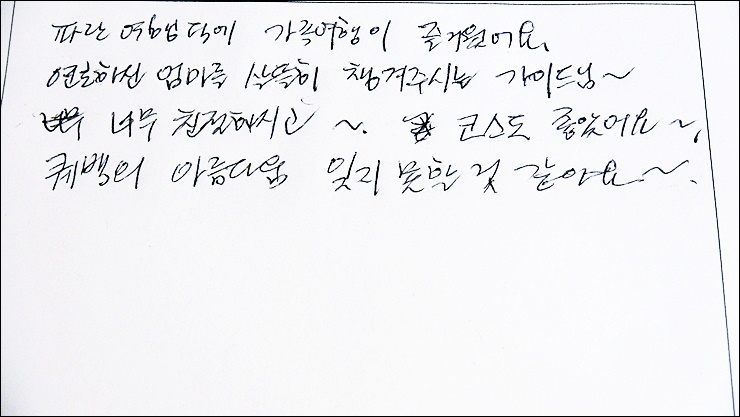 파란 여행 덕에 가족여행이 즐거웠어요.
연로하신 엄마를 살뜰히 챙겨주시는 가이드님~
너무 친절하시고 ~. 코스도 좋았어요~,
퀘백의 아름다움 잊지 못할 것 같아요~.